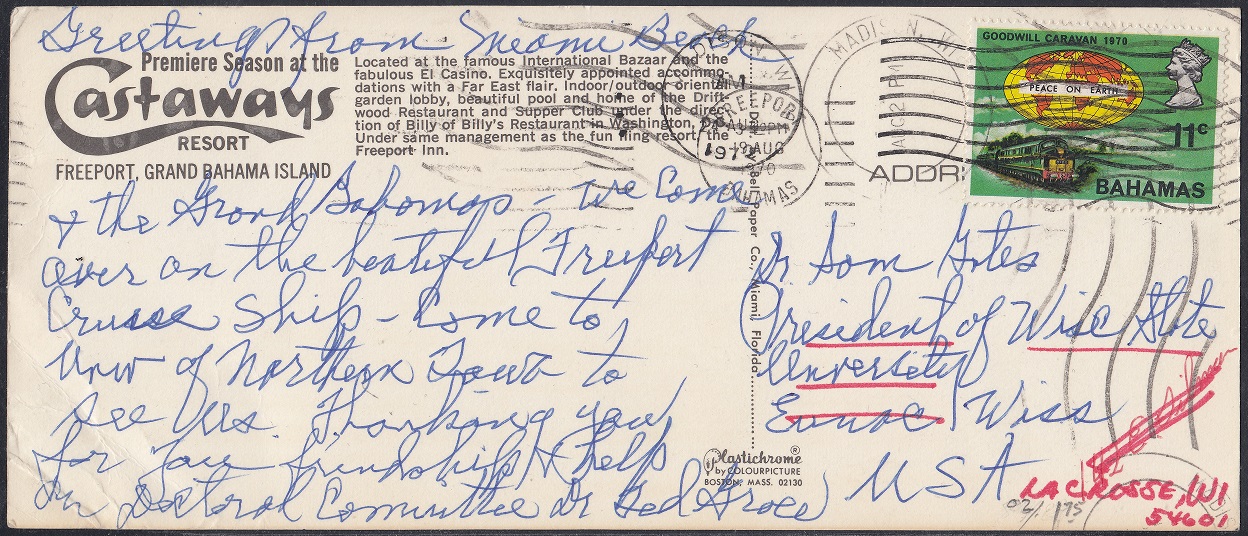 Greetings from Miami Beach
Premiere Season at the
Castaways
RESORT
FREEPORT, GRAND BAHAMA ISLAND
Located at the famous International Bazaar and the
fabulous El Casino. Exquisitely appointed accommo-
dations with a Far East flair. Indoor/outdoor oriental
garden lobby, beautiful pool and home of the Drift-
wood Restaurant and Supper Club under the direc-
tion of Billy of Billy's Restaurant in Washington, D.C.
Under same management as the fun king resort, the
Freeport Inn.
& the Grand Bahamas - We Come
over on the beautiful Freeport
Cruise Ship - Come to
Univ of Northern Iowa to
see Us. Thanking you
for your friendship & help
on Doctoral Committee Dr
Bell Paper Co., Miami, Florida
Plastichrome®
by COLOURPICTURE
BOSTON, MASS. 02130
MADIS N, WI
FREEPORT
19 AUG
BAHAMAS
ADDR
GOODWILL CARAVAN 1970
PEACE ON EARTH
11c
BAHAMAS
Dr Sam Gates
President of Wisc State
University
Wiss
USA
LA CROSSE, WI
54601